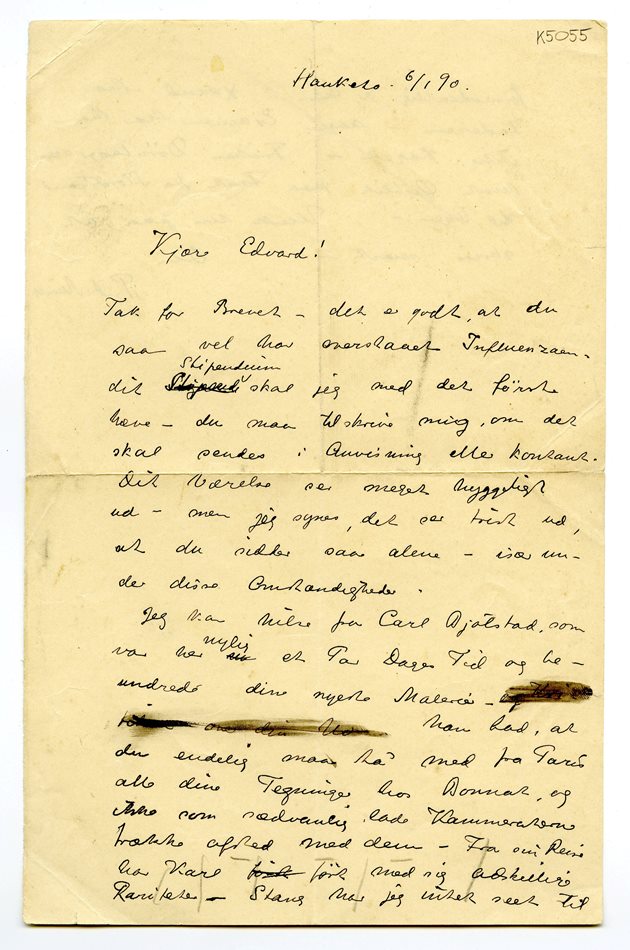 K5055
Hauketo. 6/1 90.
Kjære Edvard!
Tak for Brevet – det er godt, at du
saa vel har overstaaet Influenzaen –
Stipendium
dit skal jeg med det første
hæve – du maa tilskrive mig, om det
skal sendes i Anvisning eller kontant.
Dit Værelse ser meget hyggeligt
ud – men jeg synes, det ser trist ud,
at du sidder saa alene – især un-
der disse Omstændigheder.
Jeg kan hilse fra Carl Bjølstad, som
nylig
var her et Par Dages Tid og be-
undrede dine nyeste Malerier –
han bad, at
du endelig maa ha med fra Paris
alle dine Tegninger hos Bonnat, og
ikke som sædvanlig lade Kammeraterne
trække afsted med dem – Fra sin Reise
har Karl ført med sig adskillige
Rariteter – Stang har jeg intet seet til